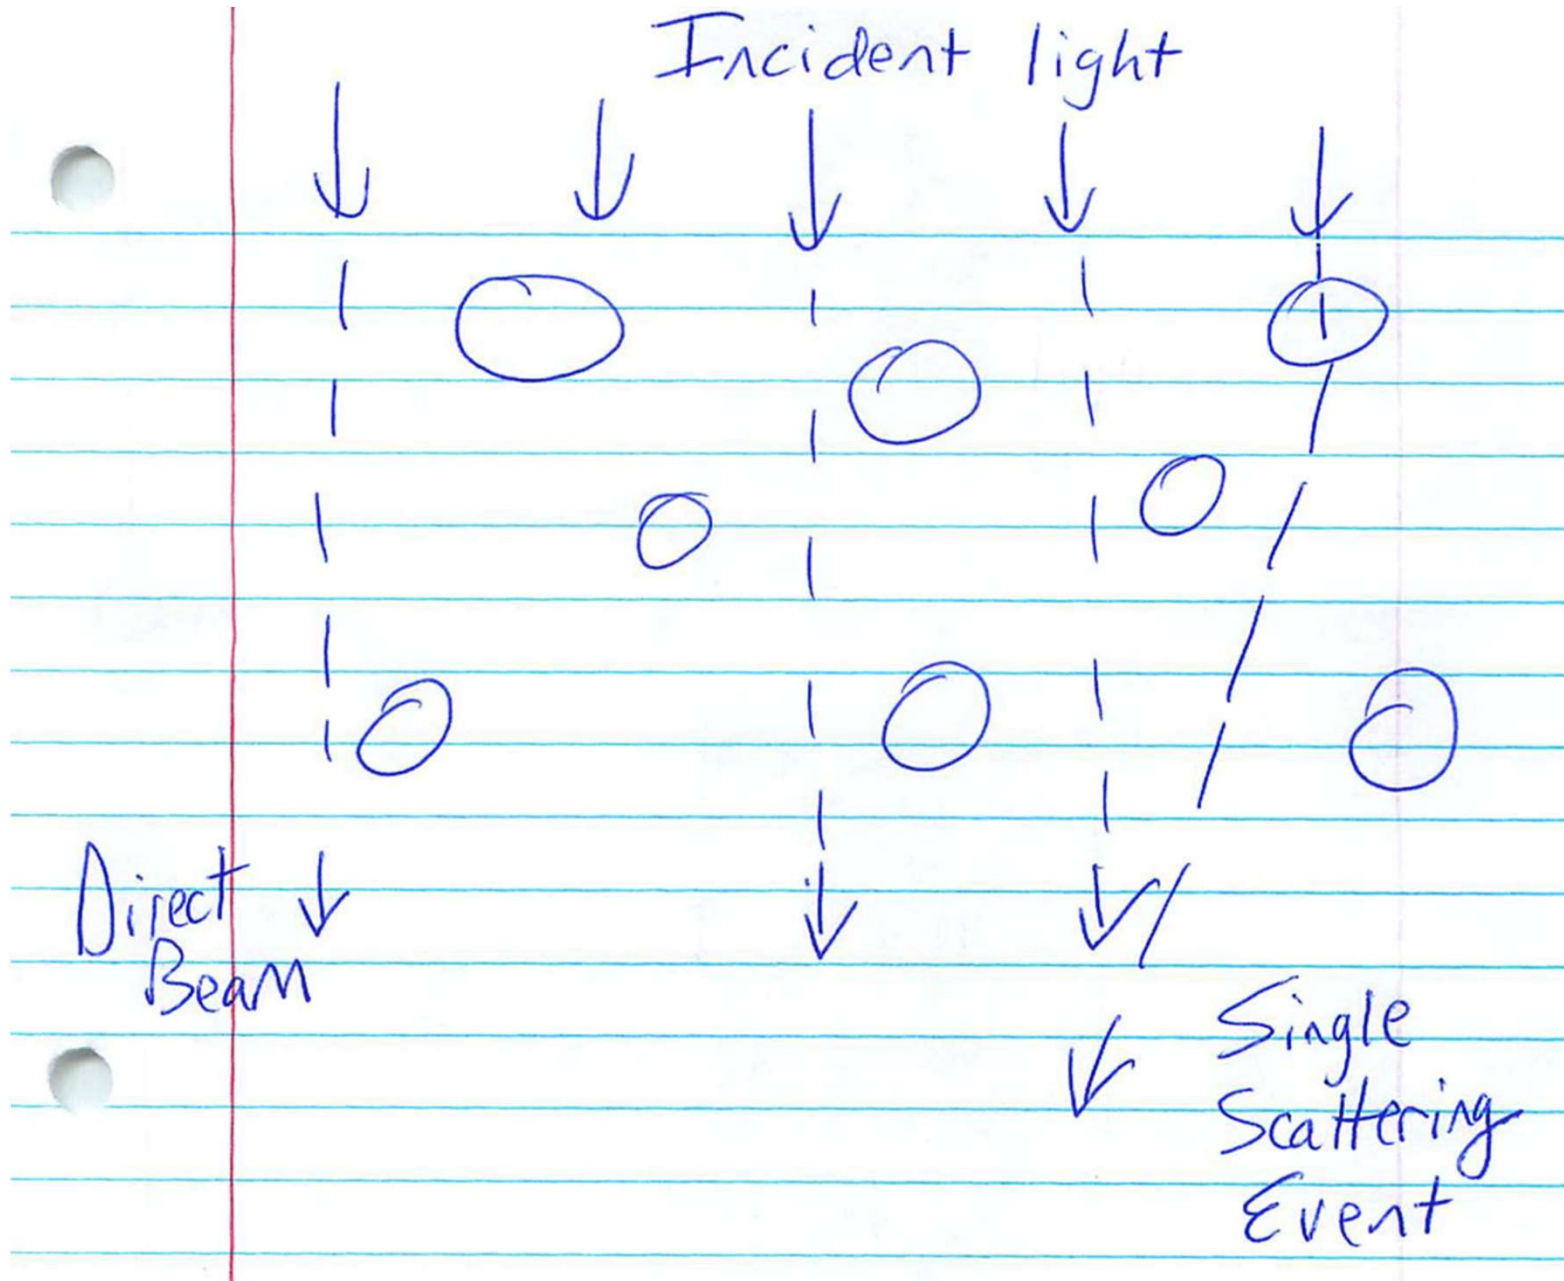 Incident light
Direct
Beam
Single
Scattering
Event